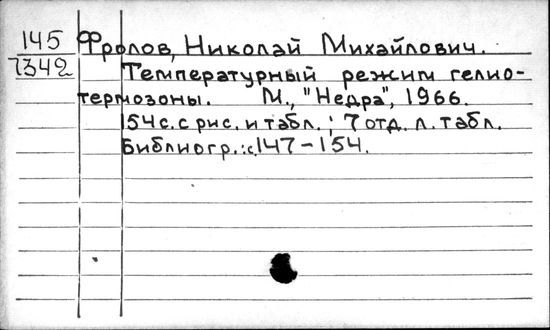 145 Фролов, Николай Михайлович.
7342 Температурный режим гелио-
термозоны. М., "Недра", 1966.
154с. с рис. и табл.; 7 отд. л. табл.
Библиогр.: с.147-154.